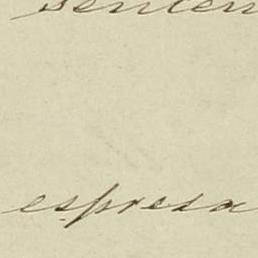 senten
espresa